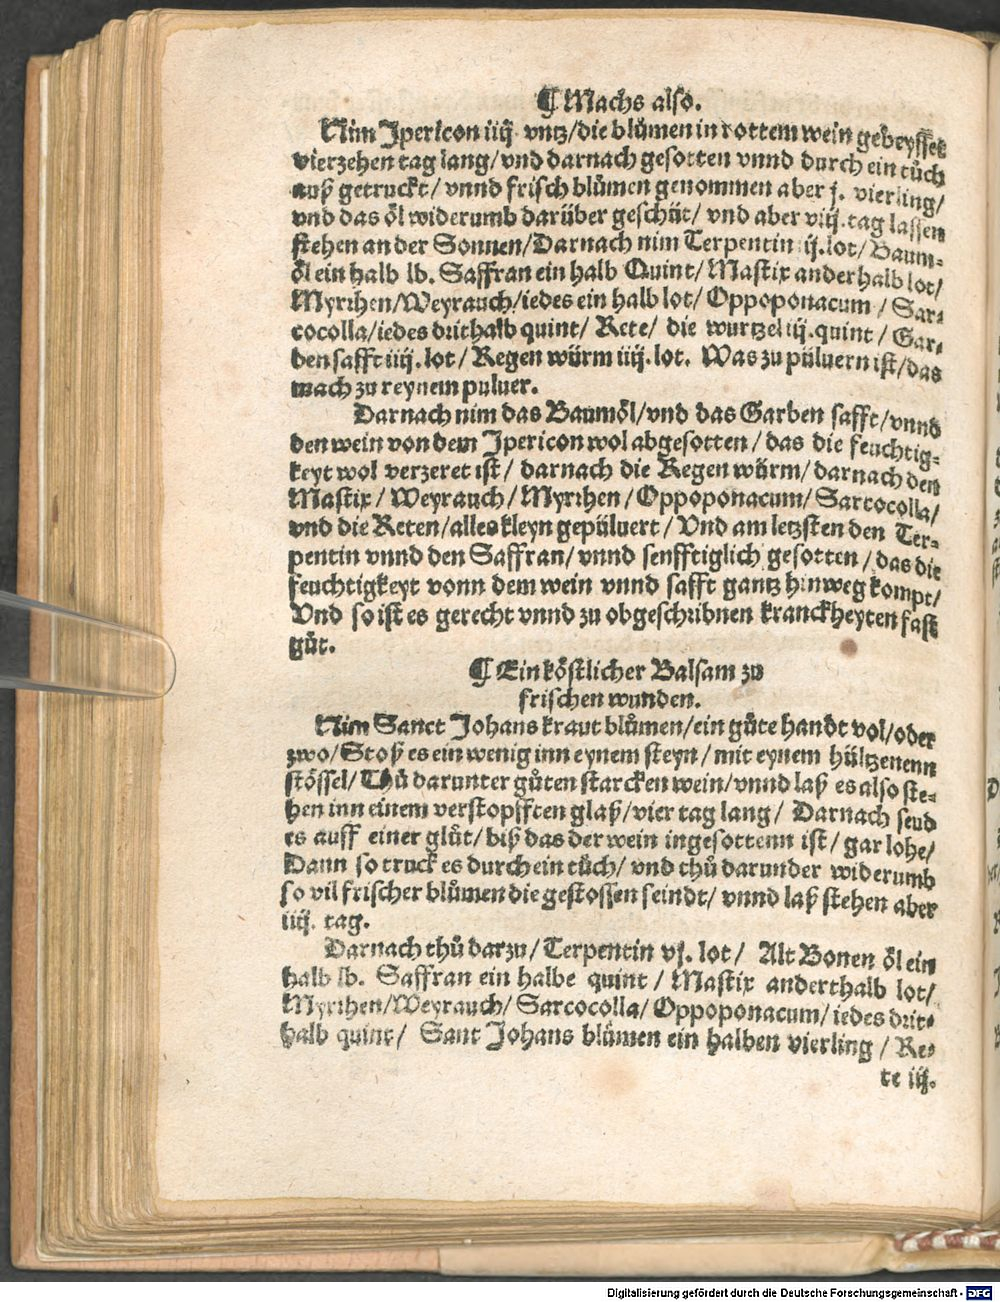 ¶ Machs also.
Nim Jpericon iiij. vntz/die blůmen in rottem wein gebeysset
vierzehen tag lang/vnd darnach gesotten vnnd durch ein tůch
auß getruckt/vnnd frisch blůmen genommen aber j. vierling/
vnd das öl widerumb darüber geschüt/vnd aber viij. tag lassen
stehen an der Sonnen/Darnach nim Terpentin iij. lot/Baum-
öl ein halb lb. Saffran ein halb Quint/Mastix anderhalb lot/
Myrrhen/Weyrauch/iedes ein halb lot/Oppoponacum/Sar-
cocolla/iedes drithalb quint/Rete/die wurtzel iij. quint/Gar-
ben safft iiij. lot/Regen würm iiij. lot. Was zu pülvern ist/das
mach zu reynem puluer.
Darnach nim das Baumöl/vnd das Garben safft/vnnd
den wein von dem Jpericon wol abgesotten/das die feuchtig-
keyt wol verzeret ist/darnach die Regen würm/darnach den
Mastix/Weyrauch/Myrrhen/Oppoponacum/Sarcocolla/
vnd die Reten/alles kleyn gepüluert/Vnd am letzsten den Ter-
pentin vnnd den Saffran/vnnd senfftiglich gesotten/das die
feuchtigkeyt vonn dem wein vnnd safft gantz hinweg kompt/
Vnd so ist es gerecht vnnd zu obgeschribnen kranckheyten fast
gůt.
¶ Ein köstlicher Balsam zu
frischen wunden.
Nim Sanct Johans kraut blůmen/ein gůte handt vol/oder
zwo/Stoß es ein wenig inn eynem steyn/mit eynem hültzenenn
stössel/Thů darunter gůten starcken wein/vnnd laß es also ste-
hen inn einem verstopfften glaß/vier tag lang/Darnach seud
es auff einer glůt/biß das der wein ingesottenn ist/gar lohe/
Dann so truck es durch ein tůch/vnd thů darunder widerumb
so vil frischer blůmen die gestossen seindt/vnnd laß stehen aber
iiij. tag.
Darnach thů darzu/Terpentin vj. lot/Alt Bonen öl ein
halb lb. Saffran ein halbe quint/Mastix anderthalb lot/
Myrrhen/Weyrauch/Sarcocolla/Oppoponacum/iedes drit-
halb quint/Sant Johans blůmen ein halben vierling/Re-
te iij.
Digitalisierung gefördert durch die Deutsche Forschungsgemeinschaft - DFG